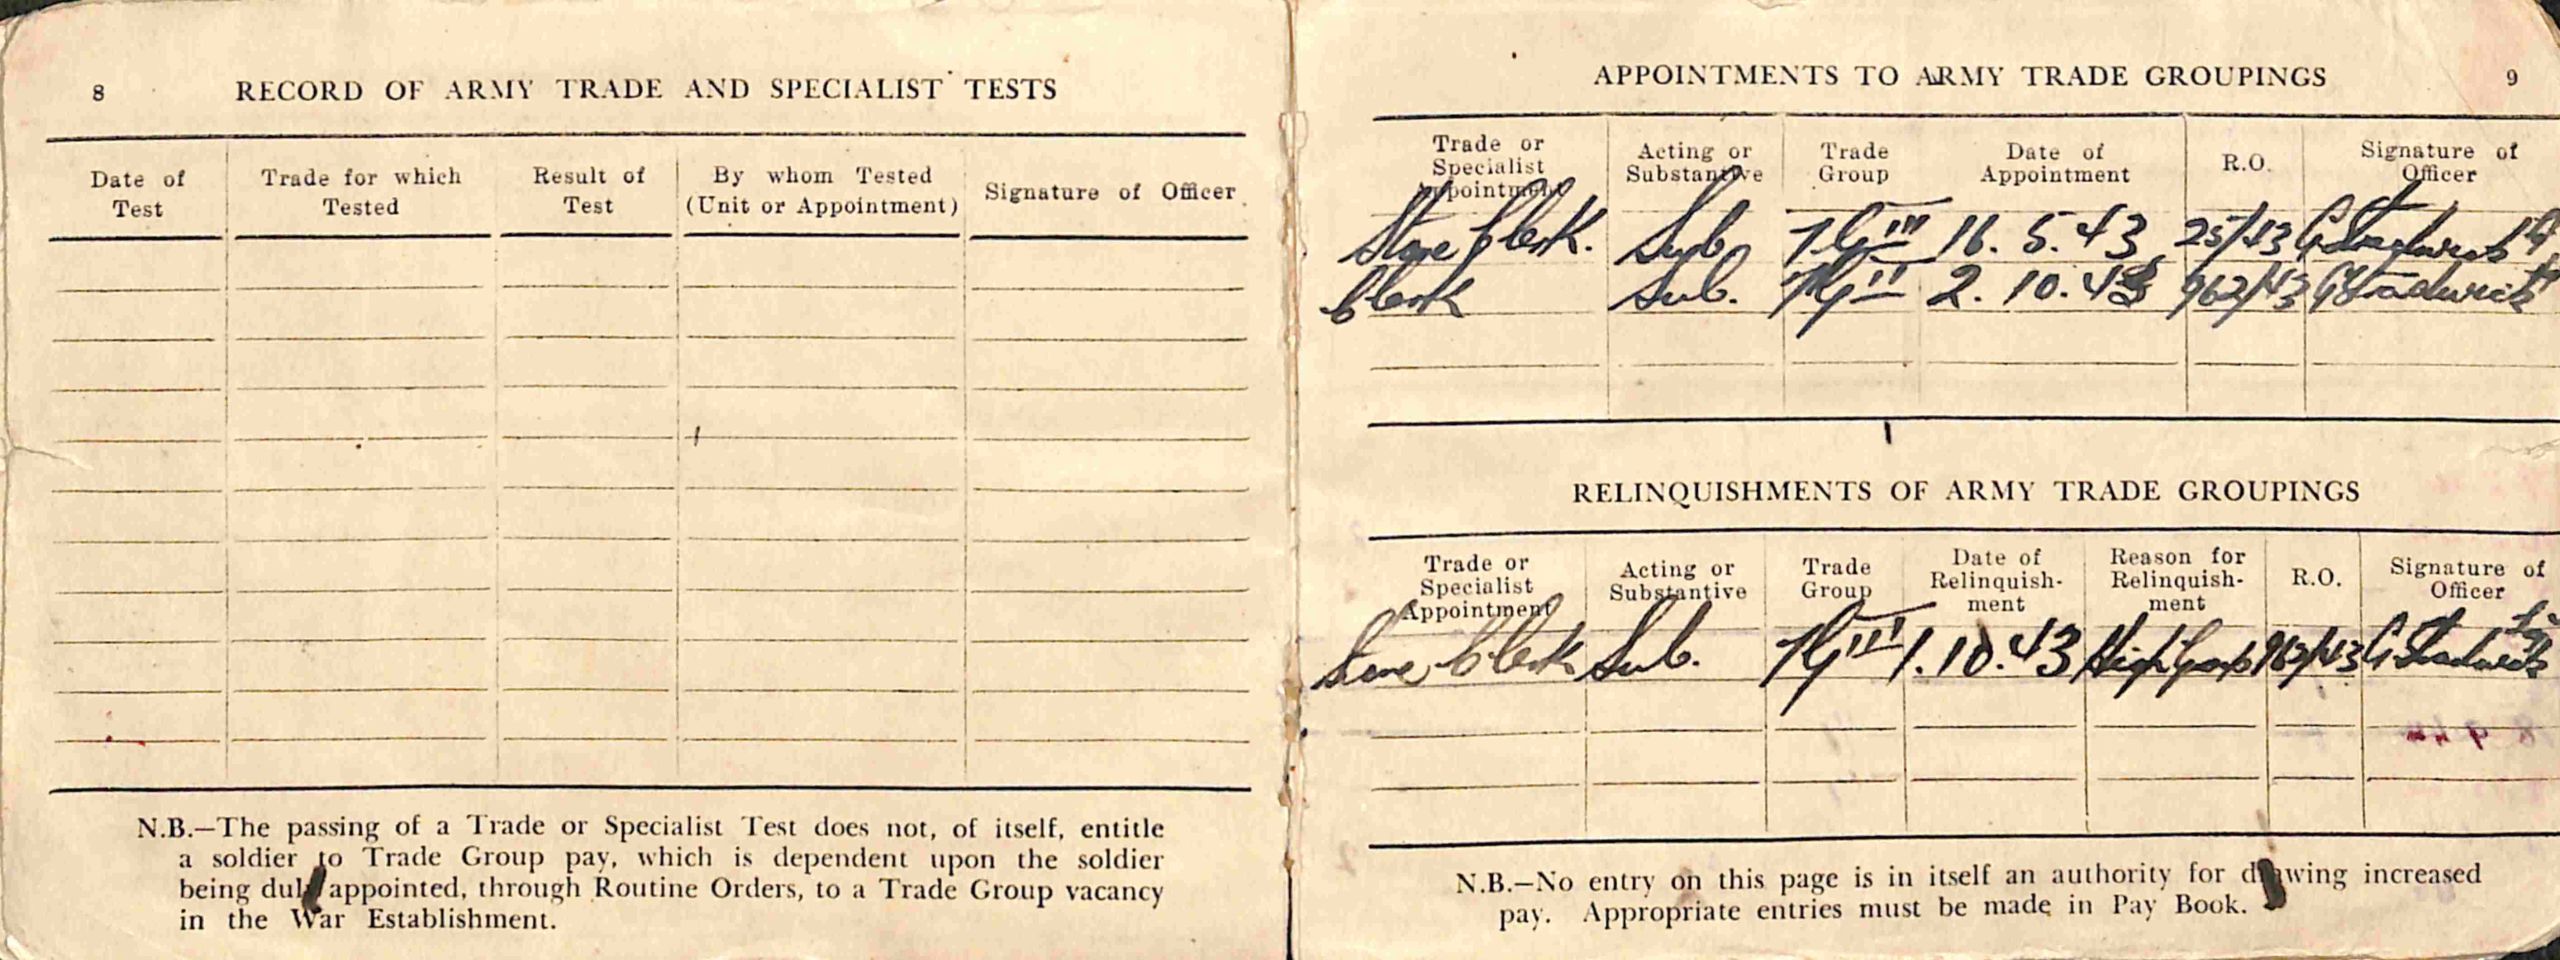 8 RECORD OF ARMY TRADE AND SPECIALIST TESTS
Date of Test
Trade for which Tested
Result of Test
By whom Tested (Unit or Appointment)
Signature of Officer
N.B.—The passing of a Trade or Specialist Test does not, of itself, entitle
a soldier to Trade Group pay, which is dependent upon the soldier
being duly appointed, through Routine Orders, to a Trade Group vacancy
in the War Establishment.
APPOINTMENTS TO ARMY TRADE GROUPINGS 9
Trade or Specialist Appointment
Acting or Substantive
Trade Group
Date of Appointment
R.O.
Signature of Officer
Store Clerk. Sub. TG III 16. 5. 43 25/43
Clerk Sub. TG II 2. 10. 43 962/43
RELINQUISHMENTS OF ARMY TRADE GROUPINGS
Trade or Specialist Appointment
Acting or Substantive
Trade Group
Date of Relinquish-ment
Reason for Relinquish-ment
R.O.
Signature of Officer
Store Clerk Sub. TG III 1.10.43 962/43
N.B.—No entry on this page is in itself an authority for drawing increased
pay. Appropriate entries must be made in Pay Book.